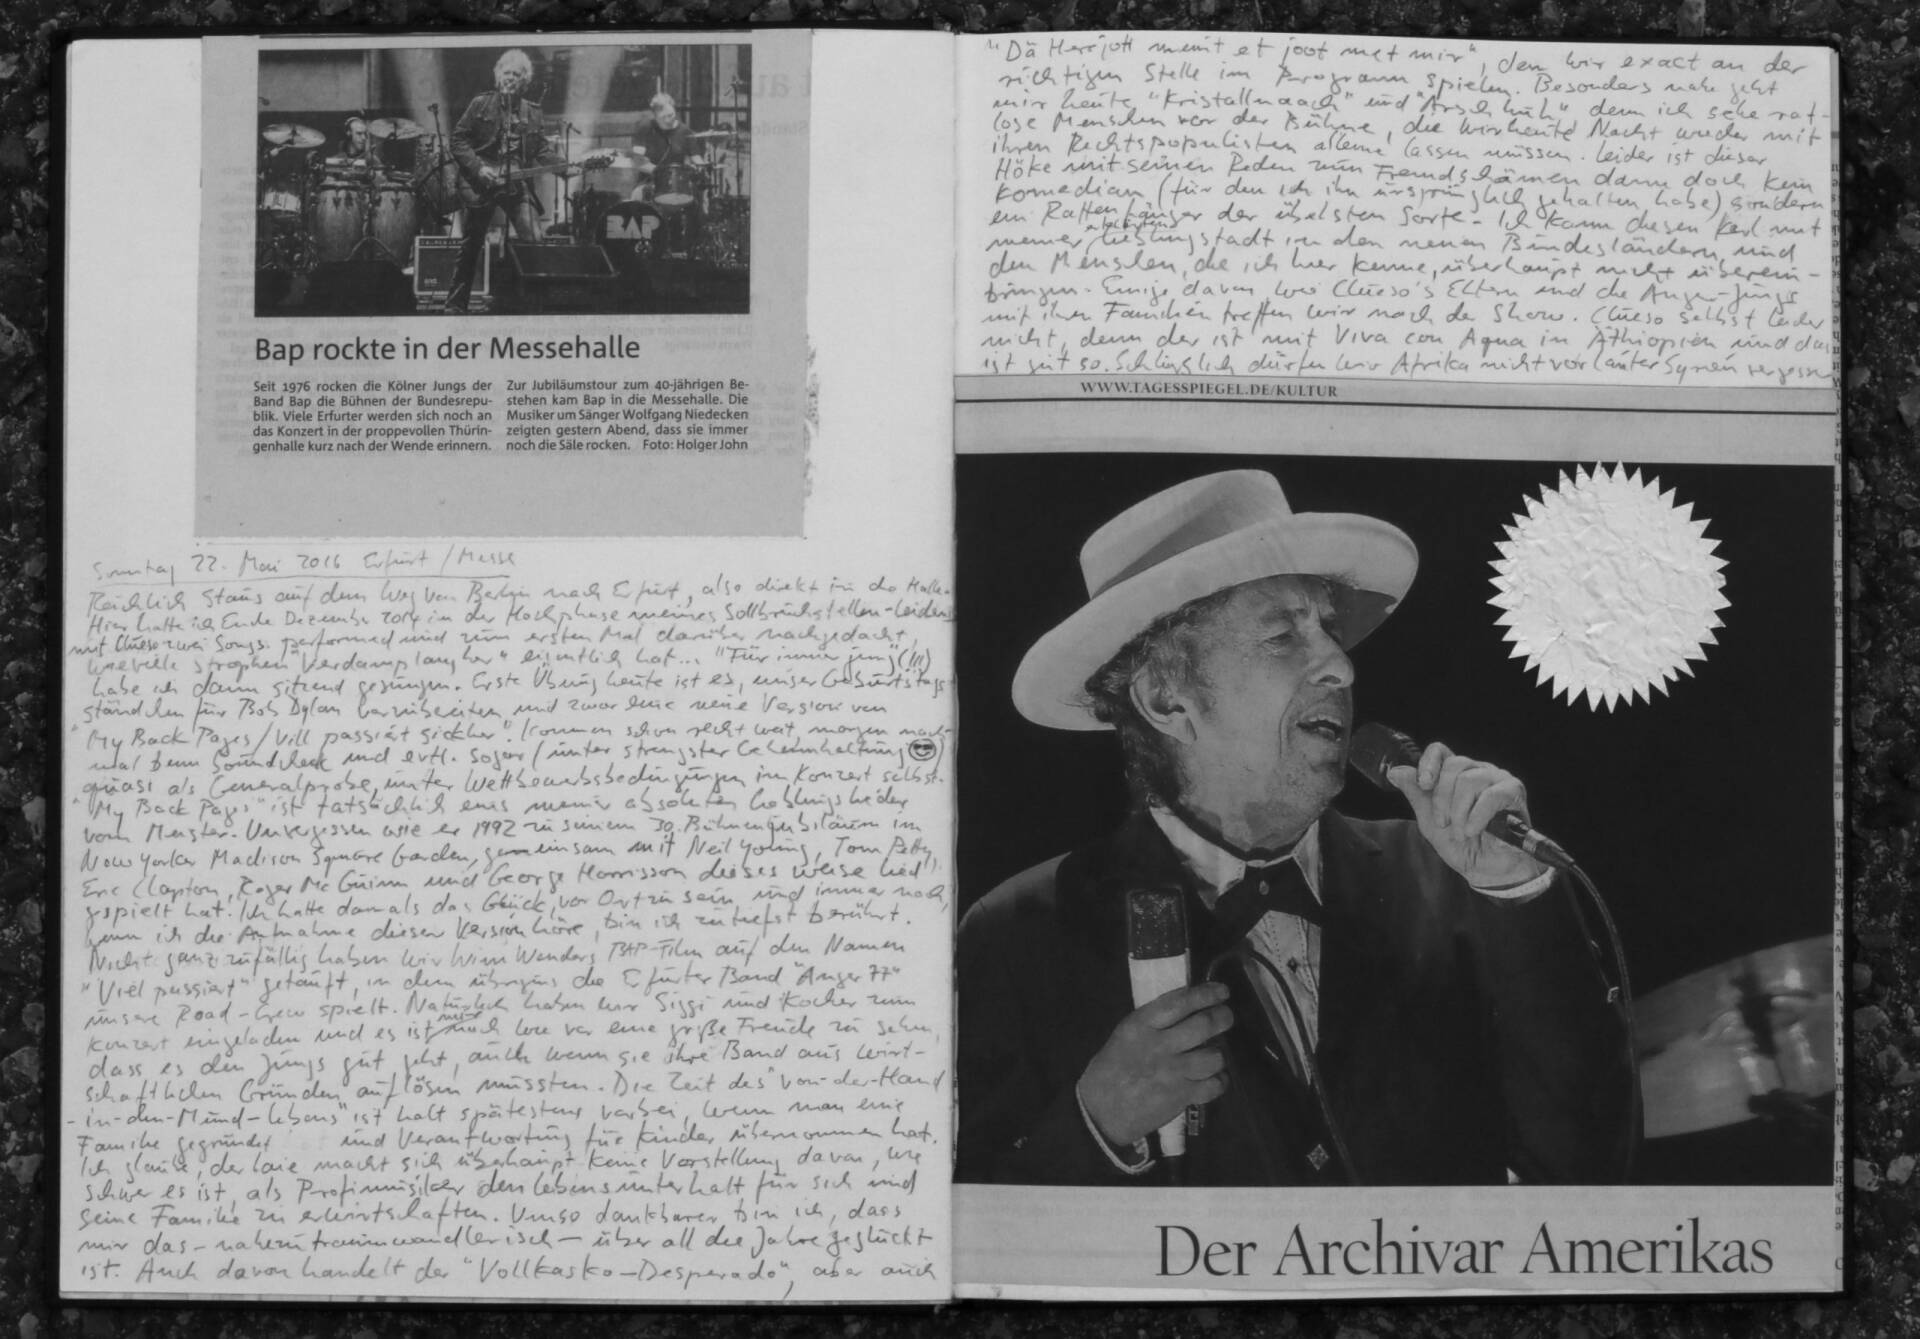 BAP
Bap rockte in der Messehalle
Seit 1976 rocken die Kölner Jungs der
Band Bap die Bühnen der Bundesrepu-
blik. Viele Erfurter werden sich noch an
das Konzert in der proppevollen Thürin-
genhalle kurz nach der Wende erinnern.
Zur Jubiläumstour zum 40-jährigen Be-
stehen kam Bap in die Messehalle. Die
Musiker um Sänger Wolfgang Niedecken
zeigten gestern Abend, dass sie immer
noch die Säle rocken. Foto: Holger John
Sonntag 22. Mai 2016 Erfurt / Messe
Reichlich Staus auf dem Weg von Berlin nach Erfurt, also direkt in die Halle.
Hier hatte ich Ende Dezember 2014 in der Hochphase meines Sollbruchstellen-Leidens
mit Clueso zwei Songs performed und zum ersten Mal darüber nachgedacht,
wieviele Strophen "Verdamp lang her" eigentlich hat... "Für immer jung" (!!!)
habe ich dann sitzend gesungen. Erste Übung heute ist es, unser Geburtstags-
ständchen für Bob Dylan vorzubereiten und zwar eine neue Version von
"My Back Pages / Vill passiert sickher". Kommen schon recht weit, morgen noch-
mal beim Soundcheck und evtl. sogar (unter strengster Geheimhaltung)
quasi als Generalprobe, unter Wettbewerbsbedingungen im Konzert selbst.
"My Back Pages" ist tatsächlich eins meiner absoluten Lieblingslieder
vom Meister. Unvergessen wie er 1992 zu seinem 30. Bühnenjubiläum im
New Yorker Madison Square Garden, gemeinsam mit Neil Young, Tom Petty,
Eric Clapton, Roger McGuinn und George Harrisson dieses weise Lied
gespielt hat. Ich hatte damals das Glück, vor Ort zu sein und immer noch,
wenn ich die Aufnahme dieser Version höre, bin ich zutiefst berührt.
Nicht ganz zufällig haben wir Wim Wenders BAP-Film auf den Namen
"Viel passiert" getauft, in dem übrigens die Erfurter Band "Anger 77"
unsere Road-Crew spielt. Natürlich haben wir Siggi und Kocher zum
Konzert eingeladen und es ist mir nach wie vor eine große Freude zu sehen,
dass es den Jungs gut geht, auch wenn sie ihre Band aus wirt-
schaftlichen Gründen auflösen mussten. Die Zeit des "Von-der-Hand
-in-den-Mund-Lebens" ist halt spätestens vorbei, wenn man eine
Familie gegründet und Verantwortung für Kinder übernommen hat.
Ich glaube, der Laie macht sich überhaupt keine Vorstellung davon, wie
schwer es ist, als Profimusiker den Lebensunterhalt für sich und
seine Familie zu erwirtschaften. Umso dankbarer bin ich, dass
mir das - nahezu traumwandlerisch - über all die Jahre geglückt
ist. Auch davon handelt der "Vollkasko-Desperado", aber auch
"Dä Herrjott meint et joot met mir", den wir exact an der
richtigen Stelle im Programm spielen. Besonders nahe geht
mir heute "Kristallnaach" und "Arsch huh" denn ich sehe rat-
lose Menschen vor der Bühne, die wir heute Nacht wieder mit
ihren Rechtspopulisten alleine lassen müssen. Leider ist dieser
Höke mit seinen Reden zum Fremdschämen dann doch kein
Komedian (für den ich ihn ursprünglich gehalten habe) sondern
ein Rattenfänger der übelsten Sorte. Ich kann diesen Kerl mit
meiner erklärten Lieblingsstadt in den neuen Bundesländern und
den Menschen, die ich hier kenne, überhaupt nicht überein-
bringen. Einige davon wie Clueso's Eltern und die Anger-Jungs
mit ihren Familien treffen wir nach der Show. Clueso selbst leider
nicht, denn der ist mit Viva con Aqua in Äthiopien und das
ist gut so. Schließlich dürfen wir Afrika nicht vor lauter Syrien vergessen
WWW.TAGESSPIEGEL.DE/KULTUR
Der Archivar Amerikas